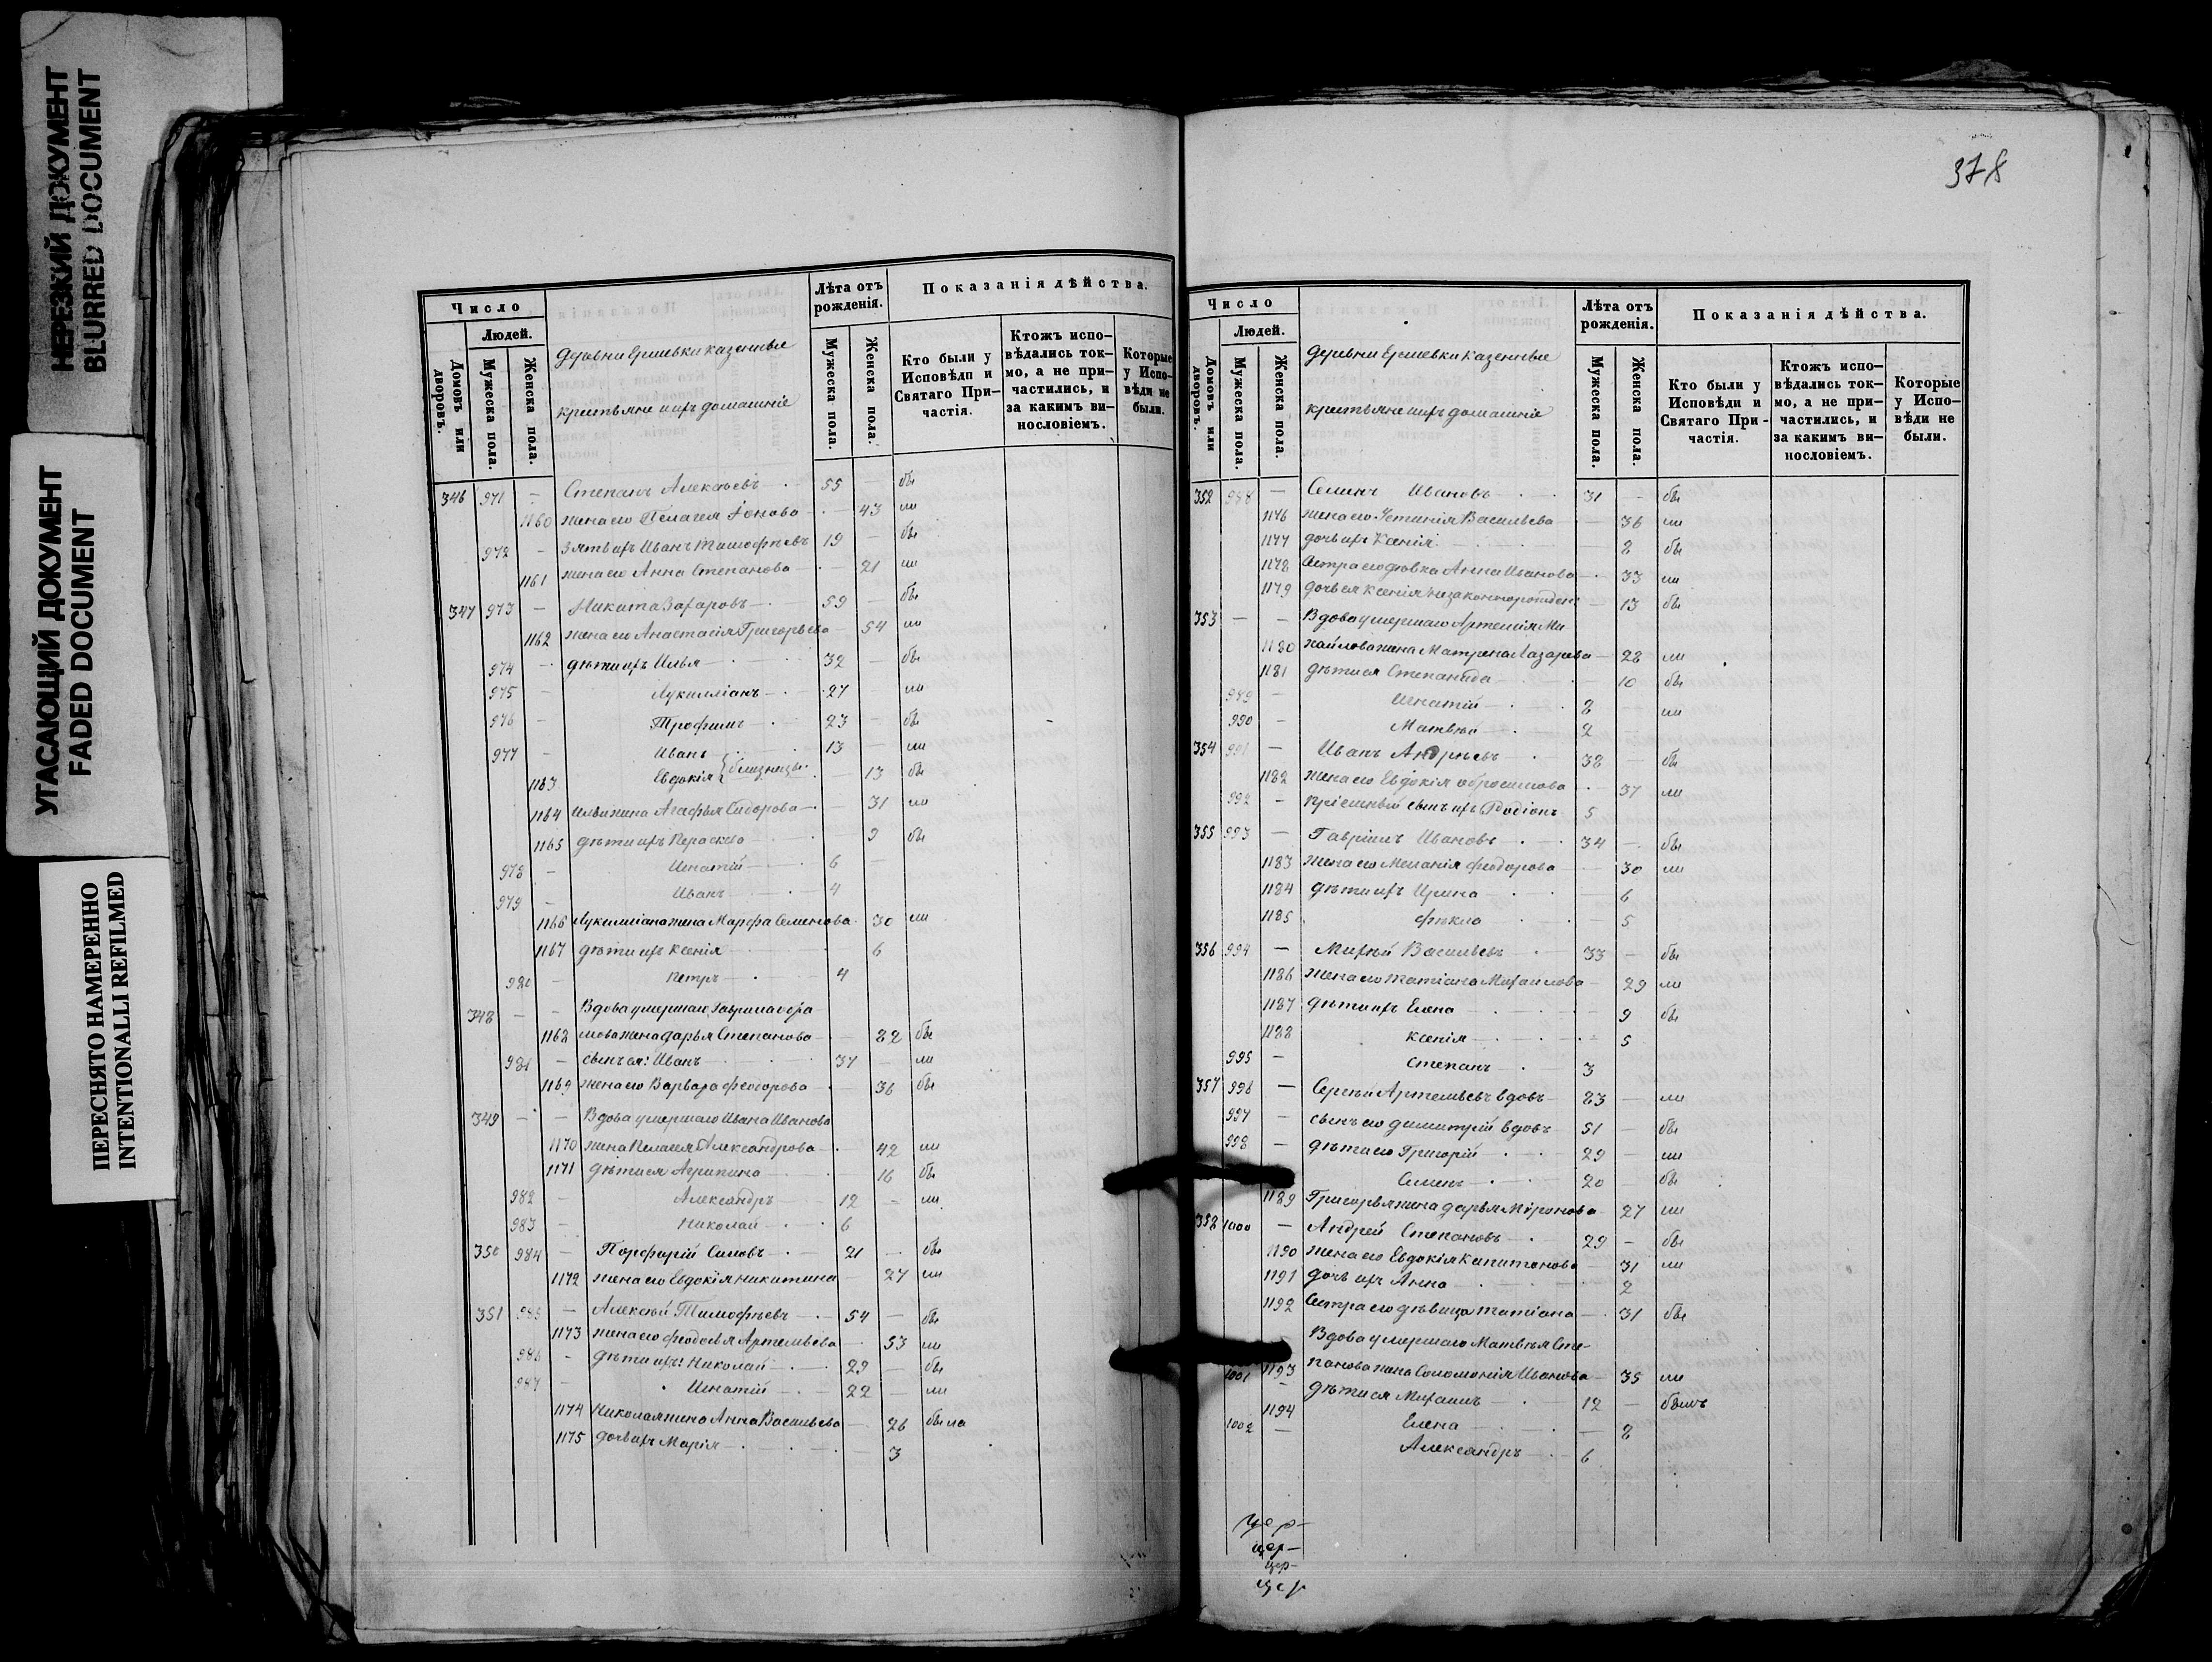 НЕРЕЗКИЙ ДОКУМЕНТ
BLURRED DOCUMENT
УГАСАЮЩИЙ ДОКУМЕНТ
FADED DOCUMENT
ПЕРЕСНЯТО НАМЕРЕННО
INTENTIONALLI REFILMED
Число
Людей.
Домовъ или дворовъ.
Мужеска пола.
Женска пола.
деревни Ершевки казенные
крестьяне и ихъ домашніе
Лѣта отъ рожденія.
Мужеска пола.
Женска пола.
Показанія дѣйства.
Кто были у Исповѣди и Святаго Причастія.
Ктожъ исповѣдались токмо, а не причастились, и за какимъ винословіемъ.
Которые у Исповѣди не были.
346 971 — Степанъ Алексѣевъ 55 — бы
1160 жена его Пелагея 43 ли
972 — Зять ихъ Иванъ Тимофѣевъ 19 — бы
1161 жена его Анна Степанова 21 ли
347 973 — Никита Захаровъ 59 — бы
1162 жена его Анастасія Григорьева 54 ли
974 — дѣти ихъ Илья 32 — бы
975 — Лукилліанъ 27 — ли
976 — Трофимъ 23 — бы
977 — Иванъ 13 — ли
1163 Евдокія близнецы — 13 бы
1164 Ильи жена Агафья Сидорова — 31 ли
1165 дѣти ихъ Параскева 9 бы
978 — Игнатій 6 —
979 — Иванъ 4
1166 Лукилліана жена Марфа Семенова 30 ли
1167 дѣти ихъ Ксенія 6
980 — Петръ 4
348 — — Вдова умершаго Гаврила
1168 жена Дарья Степанова 82 бы
981 — сынъ ея: Иванъ 37 — ли
1169 жена его Варвара Феодорова 36 бы
349 — — Вдова умершаго Ивана Иванова
1170 жена Пелагея Александрова 42 ли
1171 дѣти ея Агрипина 16 бы
982 — Александръ 12 — ли
983 — Николай 6
350 984 — Порфирій Силовъ 21 — бы
1172 жена его Евдокія Никитина 27 ли
351 985 — Алексѣй Тимофѣевъ 54 — бы
1173 жена его Феодосья Артемьева 53 ли
986 — дѣти ихъ: Николай 29 — бы
987 — Игнатій 22 — ли
1174 Николая жена Анна Васильева — 26 была
1175 дочь ихъ Марія 3
378
Число
Людей.
Домовъ или дворовъ.
Мужеска пола.
Женска пола.
деревни Ершевки казенные
крестьяне и ихъ домашніе
Лѣта отъ рожденія.
Мужеска пола.
Женска пола.
Показанія дѣйства.
Кто были у Исповѣди и Святаго Причастія.
Ктожъ исповѣдались токмо, а не причастились, и за какимъ винословіемъ.
Которые у Исповѣди не были.
352 988 — Семенъ Ивановъ 31 — бы
1176 жена его Устинія Васильева 36 ли
1177 дочь ихъ Ксенія 8 бы
1178 Сестра его дѣвка Анна Иванова 33 ли
1179 дочь ея Ксенія незаконнорожден: 13 бы
353 — — Вдова умершаго Артемія Ми-
1180 хайлова жена Матрена Лазарева 28 ли
1181 дѣти ея Степанида 10 бы
989 — Игнатій 8 ли
990 — Матвѣй 2
354 991 — Иванъ Андреевъ 38 — бы
1182 жена его Евдокія Абросимова 37 ли
992 — пріемный сынъ ихъ Родіонъ 5
355 993 — Гавріилъ Ивановъ 34 — бы
1183 жена его Меланія Феодорова 30 ли
1184 дѣти ихъ Ирина 6
1185 Фекла 5
356 994 — Михѣй Васильевъ 33 — бы
1186 жена его Татіана Михайлова 29 ли
1187 дѣти ихъ Елена 9 бы
1188 Ксенія 5
995 — Степанъ 3
357 996 — Сергѣй Артемьевъ вдовъ 83 — ли
997 — сынъ его Димитрій вдовъ 51 — бы
998 — дѣти его Григорій 29 — ли
Семенъ 20 бы
1189 Григорья жена Дарья Миронова 27 ли
358 1000 — Андрей Степановъ 29 — бы
1190 жена его Евдокія Капитонова 31 ли
1191 дочь ихъ Анна 2
1192 Сестра его дѣвица Татіана 31 бы
Вдова умершаго Матвѣя Сте-
1193 панова жена Соломонія Иванова 35 ли
1001 — дѣти ея Михаилъ 12 — былъ
1194 Елена — 8
1002 — Александръ 6